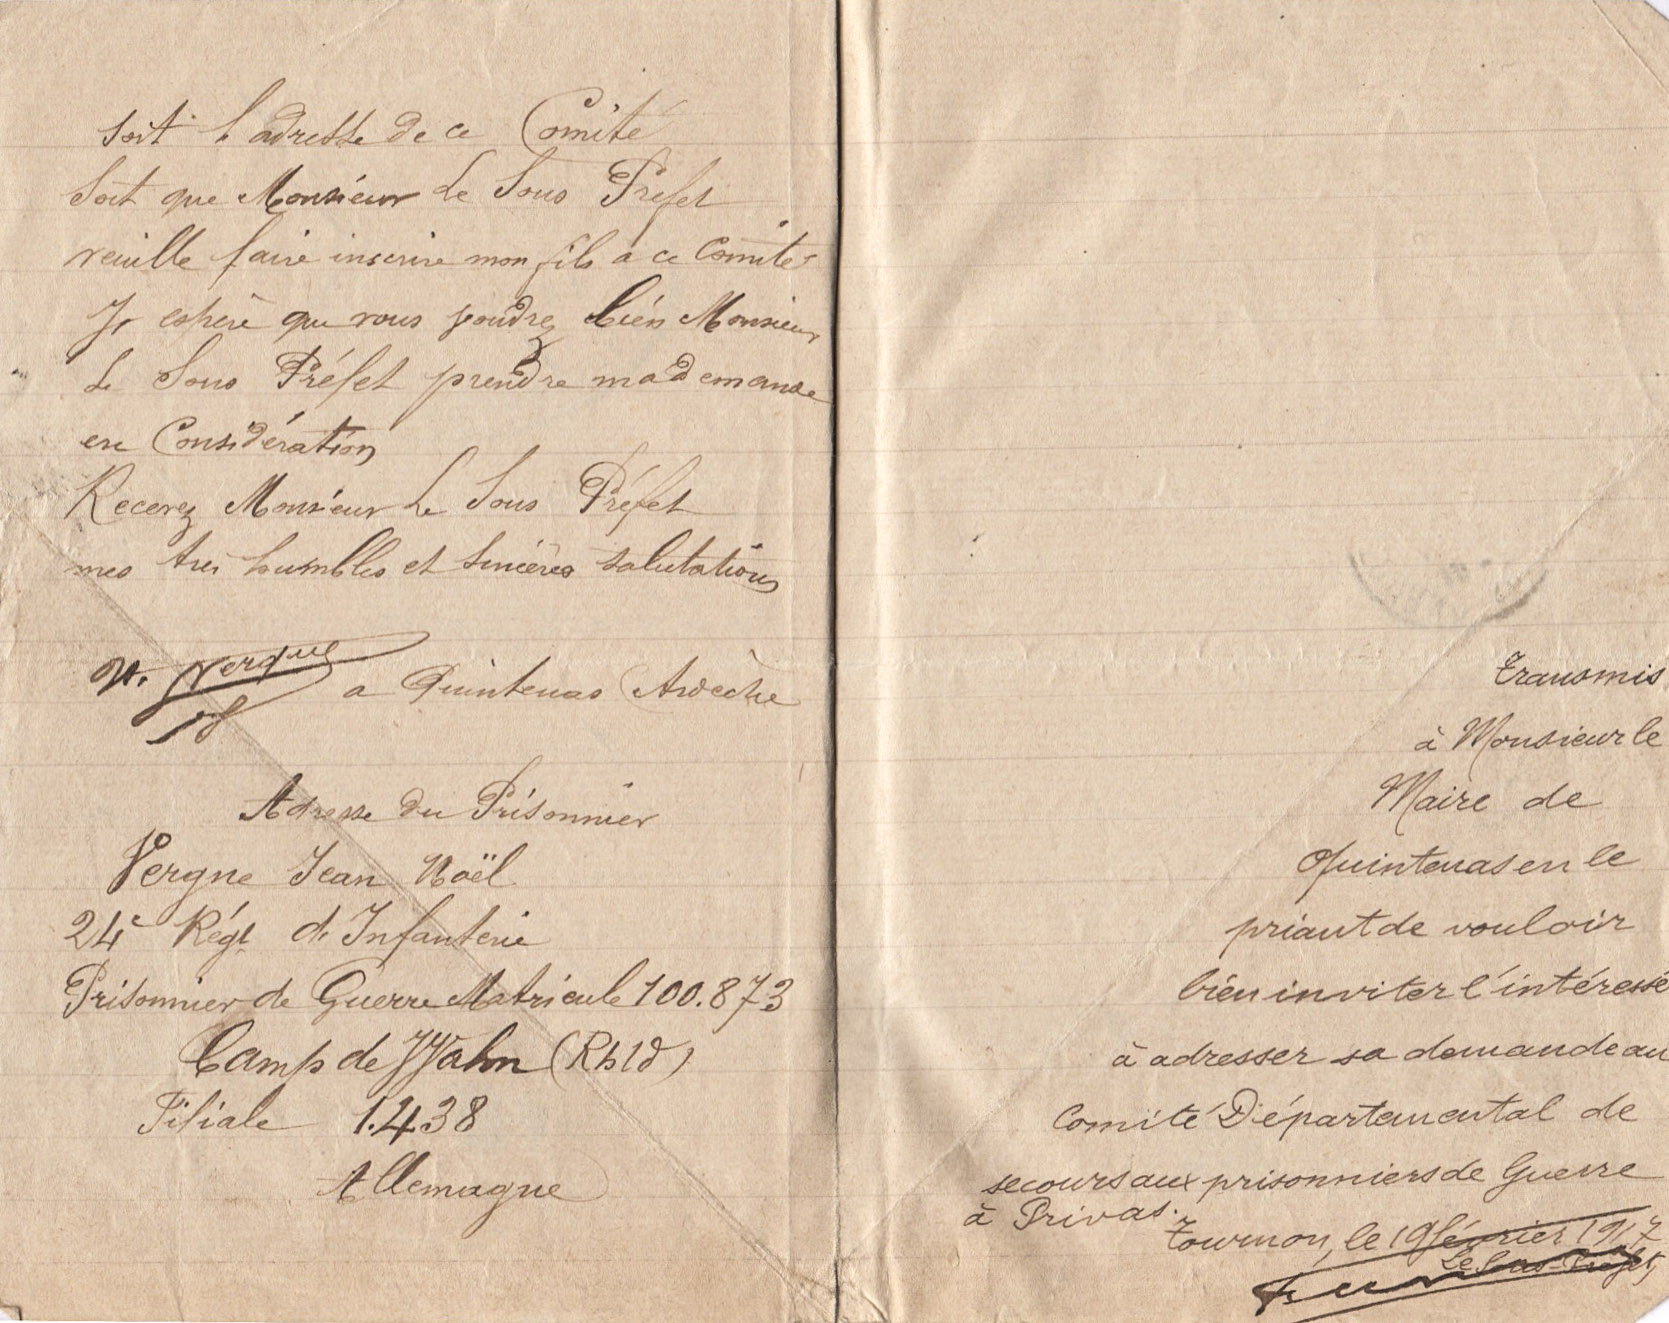 soit l adresse de ce Comité
Soit que Monsieur Le Sous Préfet
veuille faire inscrire mon fils a ce Comité
Je espère que vous voudrez bien Monsieur
Le Sous Préfet prendre ma demande
en Considération
Recevez Monsieur Le Sous Préfet
mes très humbles et sincères salutations
Vergne a Quintenas (Ardèche
Adresse du Prisonnier
Vergne Jean Noël
24e Régt d'Infanterie
Prisonnier de Guerre Matricule 100.873
Camp de Wahn (Rhld)
Filiale 1.438
Allemagne
Transmis
à Monsieur le
Maire de
Quintenas en le
priant de vouloir
bien inviter l'intéressé
à adresser sa demande au
Comité Départemental de
secours aux prisonniers de Guerre
à Privas.
Tournon, le 19 février 1917
Le Sous-Préfet,